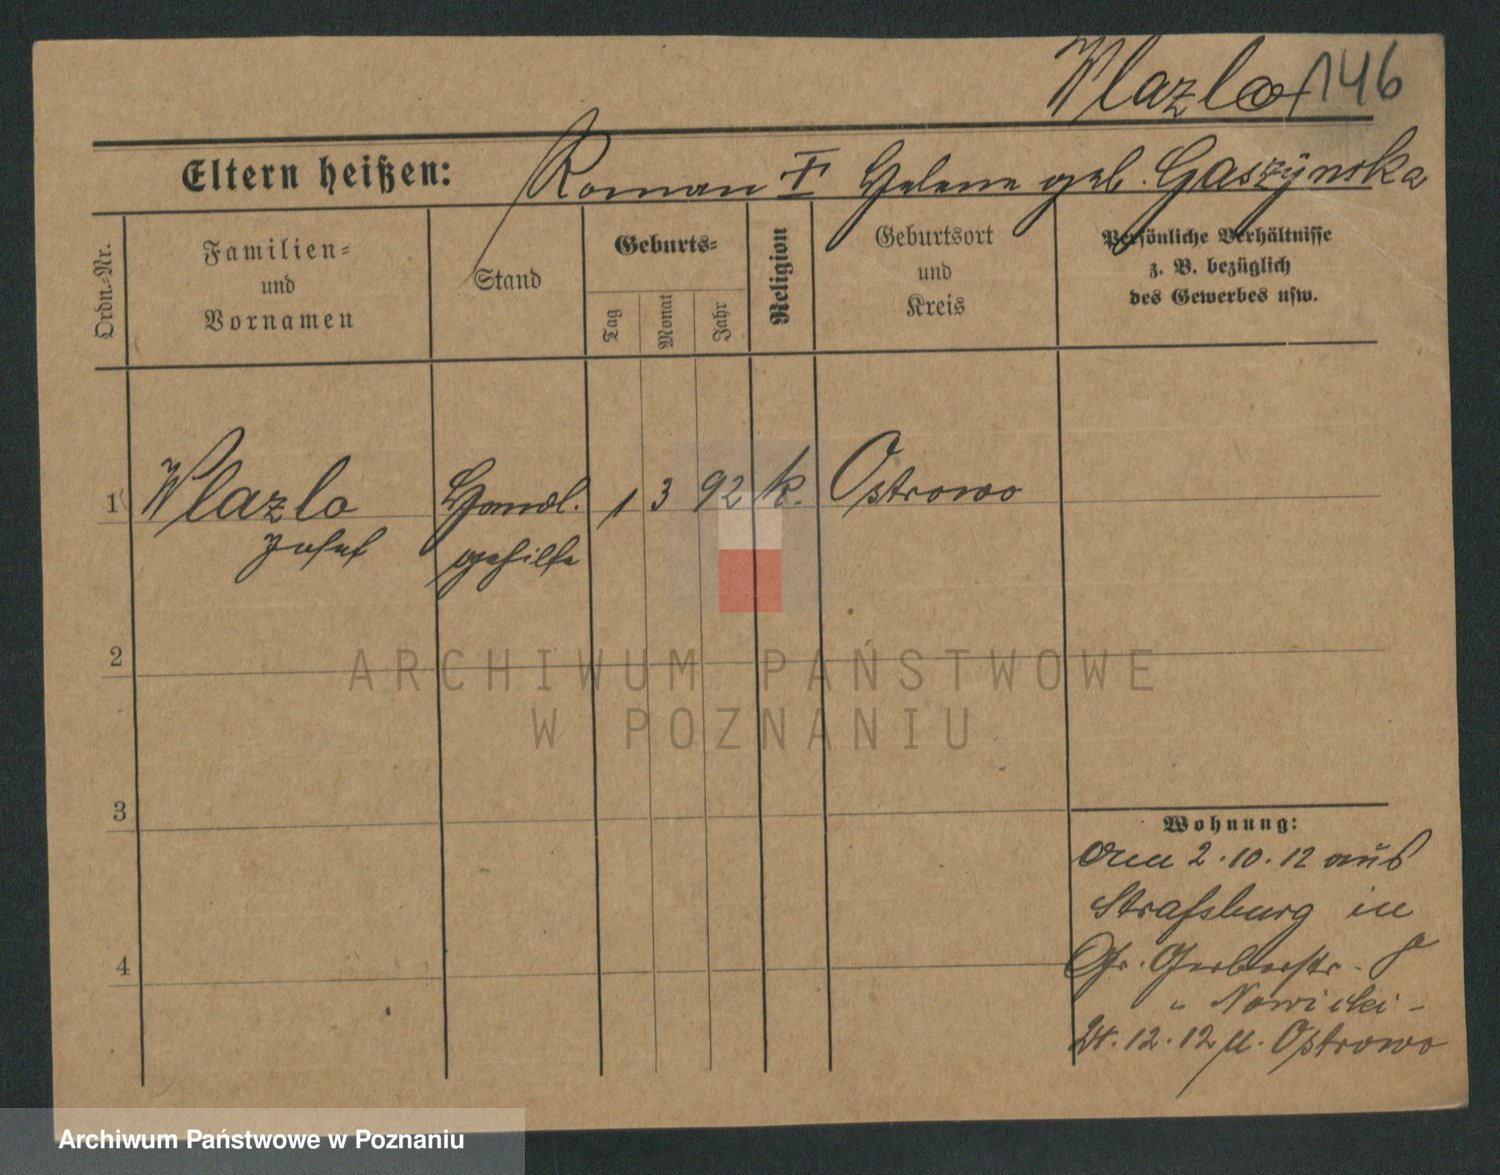 Wlazlo 146
Eltern heißen: Roman † Helene geb. Gaszynska
Ordn.-Nr.
Familien-
und
Vornamen
Stand
Geburts-
Tag
Monat
Jahr
Religion
Geburtsort
und
Kreis
Persönliche Verhältnisse
z. B. bezüglich
des Gewerbes usw.
1 Wlazlo Handl. 1 3 92 k. Ostrowo
Josef gehilfe
2
3
4
Wohnung:
2.10.12 aus
Strassburg in
Gr. Gerberstr.
" Nowicki -
24.12.12 n. Ostrowo
ARCHIWUM PAŃSTWOWE
W POZNANIU
Archiwum Państwowe w Poznaniu